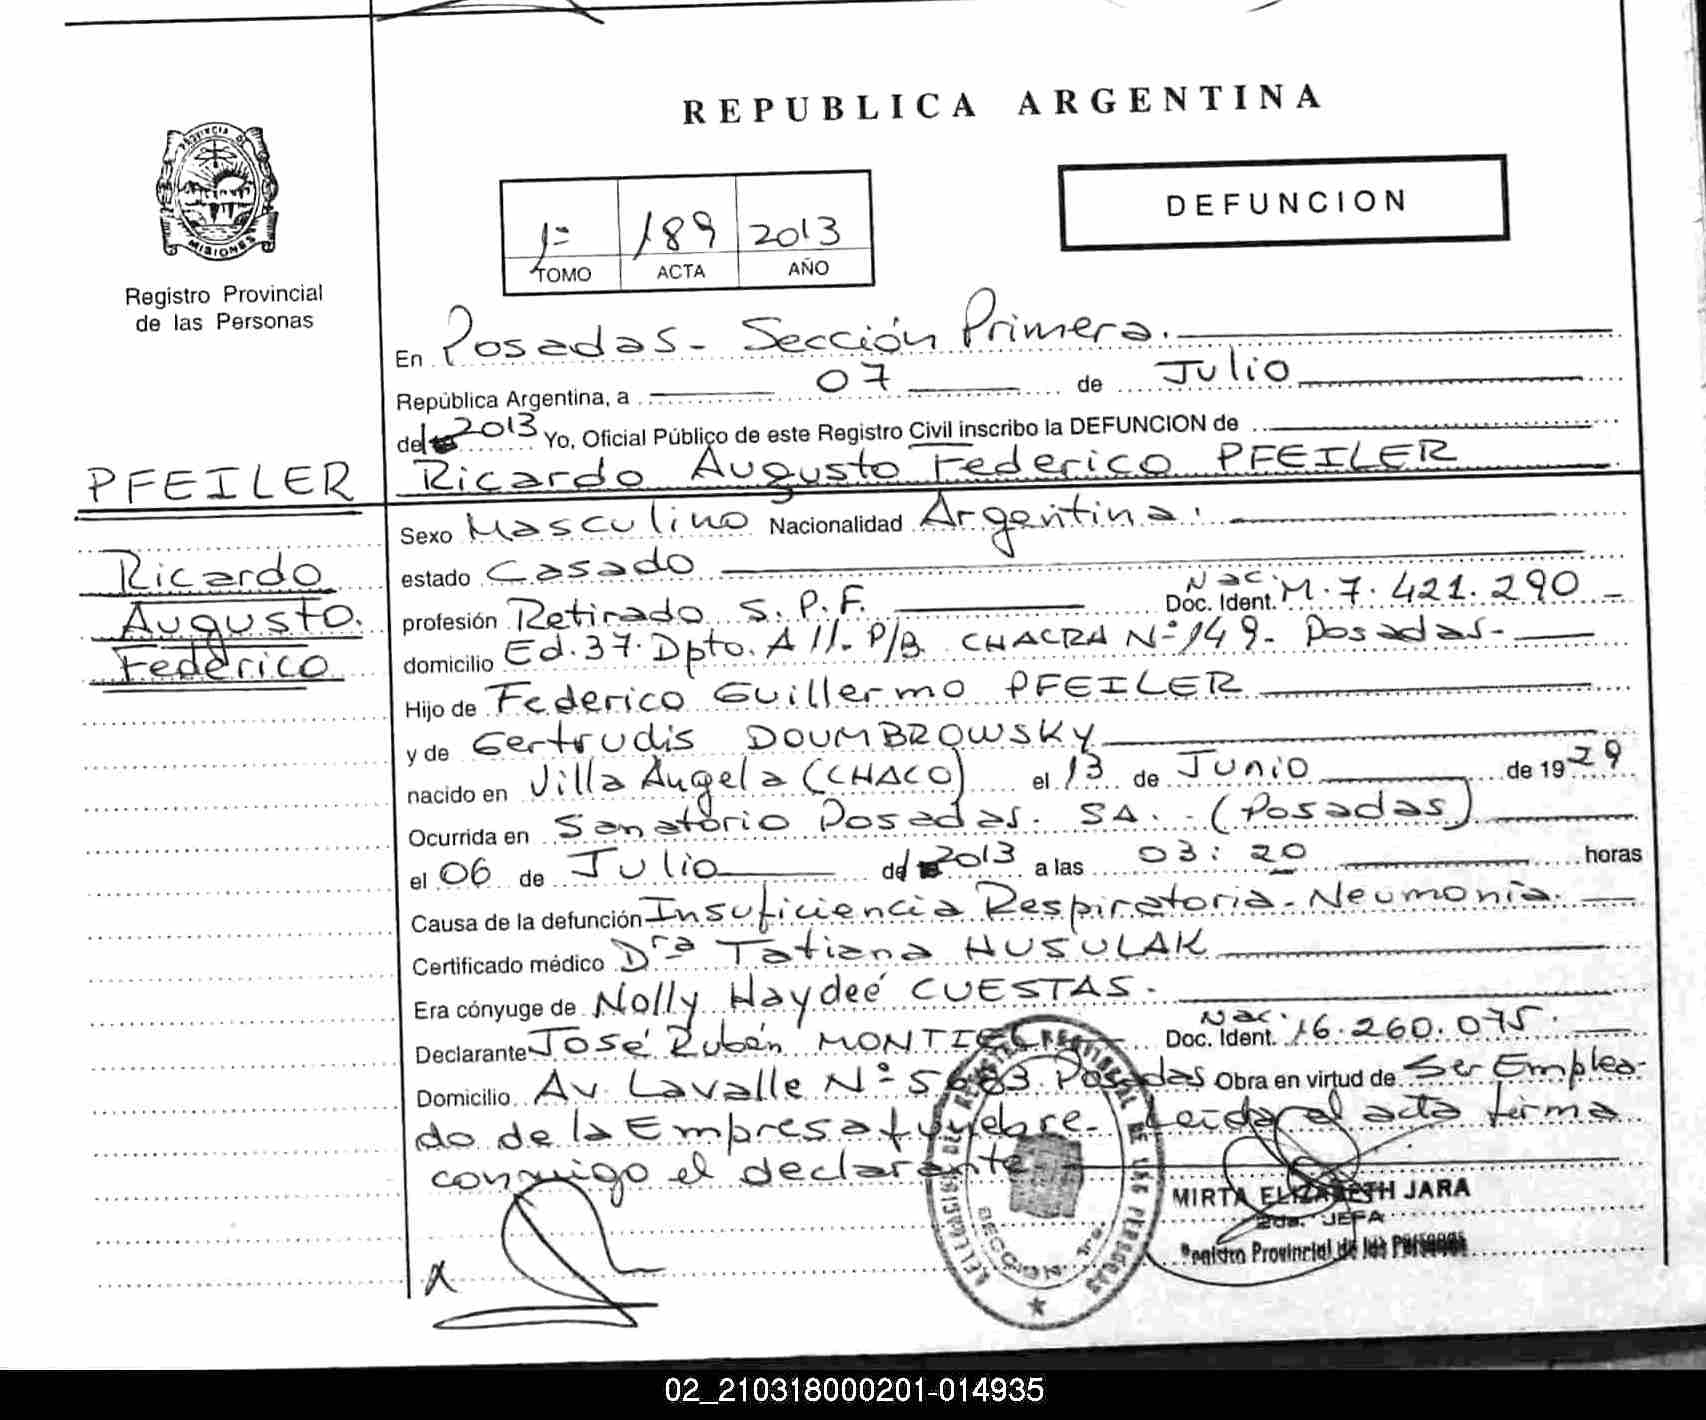 REPUBLICA ARGENTINA
PROVINCIA DE
MISIONES
Registro Provincial
de las Personas
DEFUNCION
1º 189 2013
TOMO ACTA AÑO
En Posadas - Sección Primera.
República Argentina, a 07 de Julio
del 2013 Yo, Oficial Público de este Registro Civil inscribo la DEFUNCION de
PFEILER
Ricardo Augusto Federico PFEILER
Ricardo
Augusto.
Federico
Sexo Masculino Nacionalidad Argentina.
estado Casado
profesión Retirado S.P.F. Doc. Ident. Nac. M. 7.421.290
domicilio Ed. 37. Dpto. A 11. P/B. CHACRA Nº 149- Posadas-
Hijo de Federico Guillermo PFEILER
y de Gertrudis DOUMBROWSKY
nacido en Villa Angela (CHACO) el 13 de Junio de 1929
Ocurrida en Sanatorio Posadas. SA. - (Posadas)
el 06 de Julio del 2013 a las 03:20 horas
Causa de la defunción Insuficiencia Respiratoria - Neumonia.
Certificado médico Dra Tatiana HUSULAK
Era cónyuge de Nolly Haydeé CUESTAS.
Declarante José Rubén MONTIEL Doc. Ident. Nac. 16.260.075.
Domicilio Av. Lavalle Nº 5683. Posadas Obra en virtud de Ser Emplea-
do de la Empresa funebre. Leida el acta firma
conmigo el declarante
MIRTA ELIZABETH JARA
2da. JEFA
Registro Provincial de las Personas
SECCION 1ra.
02_210318000201-014935